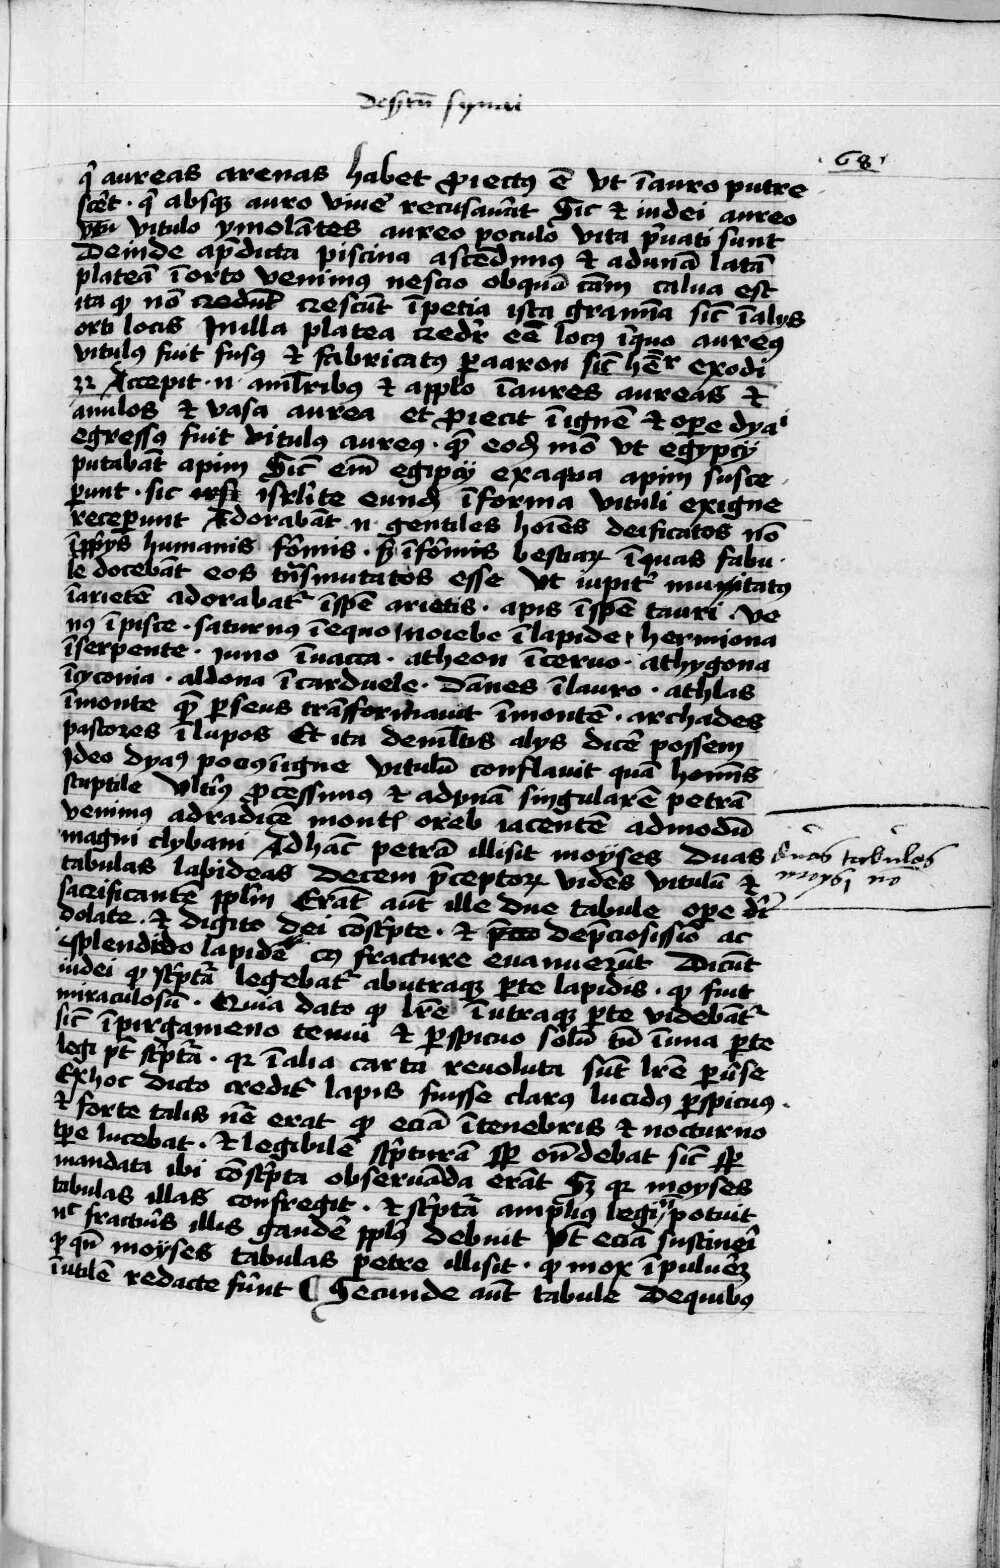 Desertū synai
68
q̄ aureas arenas habet ꝓiectꝰ ē vt ī auro putre
scēt · q̄ absqꝫ auro viuē recusauerūt Sic et iudei aureo
vitulo ymolātes aureo poculo vita p̄uati sunt
Deinde a p̄dicta piscina ascēdimꝰ et ad vnā latā
plateā ī orto venimus nescio ob quā cām calua est
ita qꝫ nō crescūt ī petia ista gramīa sic̄ ī alijs
orti locis In illa platea credr̄ eē locꝰ ī quo aureꝰ
vitulꝰ fuit fusꝰ et fabricatꝰ ꝑ aaron sic̄ hētr exodi
32 Accepit · n · a ml̄ribꝰ et app̄lo īaures aureas et
anulos et vasa aurea et ꝓiecit ī ignē et oꝑe dyai
egressꝰ fuit vitulꝰ aureꝰ · quē eodē mō vt egypcij
putabāt apim Sic̄ em̄ egipcij ex aqua apim susce
ꝑunt · sic isrl̄ite eundē ī forma vituli ex igne
receꝑunt Adorabāt · n · gentiles hoīes deificatos nō
ī p̄prijs humanis fōrmis · sꝫ ī fōrmis bestiaꝝ ī quas fabu
le docebāt eos trāsmutatos esse Vt iupitꝰ mutatꝰ
ī arietē adorabatr̄ ī sp̄e arietis · apis ī sp̄e tauri · ve
nꝰ ī pisce · saturnꝰ ī equo noiebe ī lapide hermiona
ī serpente · iuno ī vacca · atheon ī ceruo · athygona
ī cyconia · aldona ī carduele · dānes ī lauro · athlas
ī monte quē ꝑseus trāsformauit ī montē · archades
pastores ī lupos Et ita de ml̄tis alijs dicē possem
Ideo dyaꝰ pociꝰ ī igne vitulū conflauit quā homīs
sculptile Vltīꝰ ꝓcessimus et ad vnā singularē petrā
venimꝰ ad radicē montꝭ oreb iacentē ad modū
magni clybani Ad hāc petrā illisit moÿses duas
tabulas lapideas decem p̄ceptoꝝ vidēs vitulū et
sacrificantē ppl̄m Erāt aūt ille due tabule oꝑe dī
dolate · et digito dei cōsc̄pte · et de p̄ciosissīo ac
splendido lapide cꝰ fracture euanuerūt Dicūt
iudei qꝫ sc̄ptā legebatr̄ ab vtraqꝫ ꝑte lapidis · qꝫ fuit
miraculosū · Quia dato qꝫ lrē ī vtraqꝫ ꝑte videbātr̄
sic̄ ī pirgameno tenui et ꝑspicuo solū tn̄ ī vna ꝑte
legi pt̄ sc̄ptā · qꝛ ī alia carta reuoluta sūt lrē ꝑūse
Ex hoc dicto creditr̄ lapis fuisse clarꝰ lucidꝰ ꝑspicuꝰ ·
et forte talis nē erat qꝫ eciā ī tenebris et nocturno
tꝑe lucebat · et legibilē sc̄pturā sp̄ on̄debat sic̄ sp̄
mandata ibi cōsc̄pta obseruāda erāt Sꝫ qꝛ moyses
tabulas illas confregit · et sc̄ptā ampliꝰ legi nō potuit
nc̄ fracturīs illis gaudē ppl̄s debuit vt eciā sustineri
qꝫ qn̄ moÿses tabulas petre illisit · qꝫ mox ī puluerē
īutilē redacte fūrnt ¶ Secunde aūt tabule de quibꝰ
duas tabulas
moysi nō